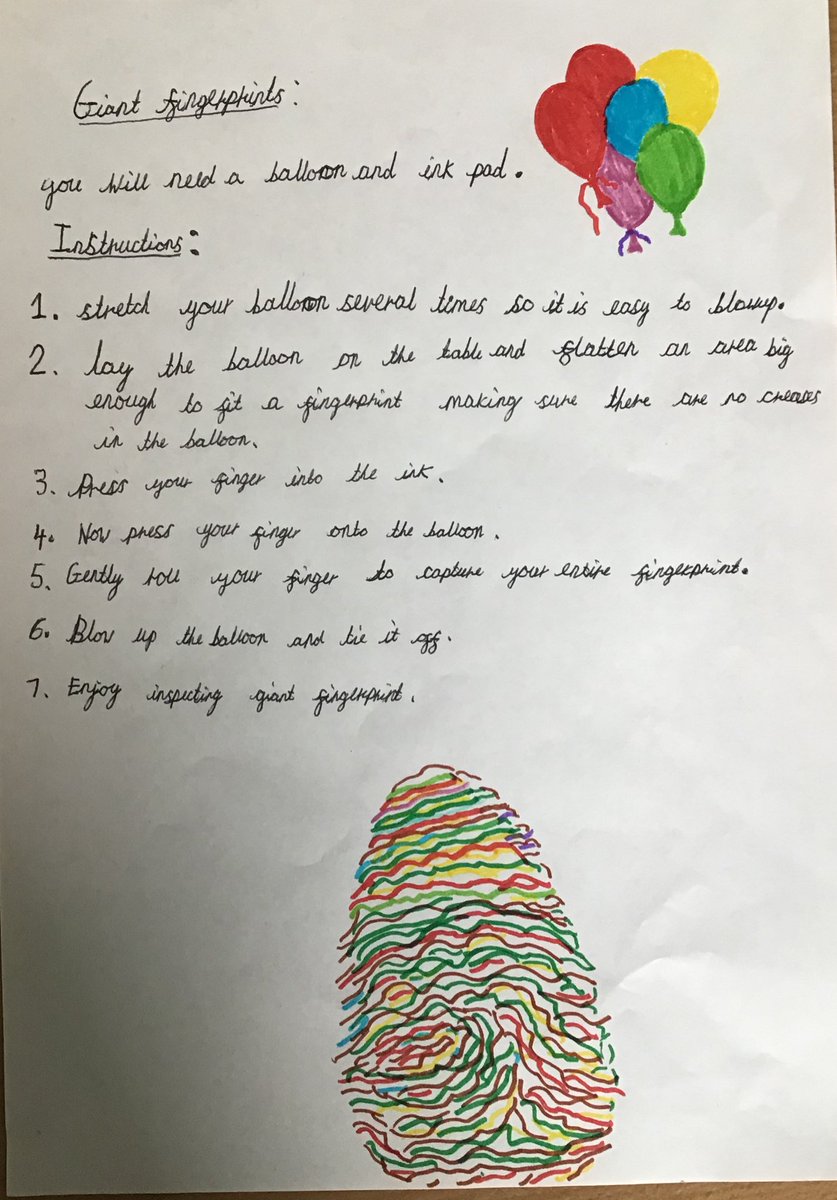 Giant fingerprints:
you will need a balloon and ink pad.
Instructions:
1. stretch your balloon several times so it is easy to blowup.
2. lay the balloon on the table and flatten an area big
enough to fit a fingerprint making sure there are no creases
in the balloon.
3. Press your finger into the ink.
4. Now press your finger onto the balloon.
5. Gently roll your finger to capture your entire fingerprint.
6. Blow up the balloon and tie it off.
7. Enjoy inspecting giant fingerprint.